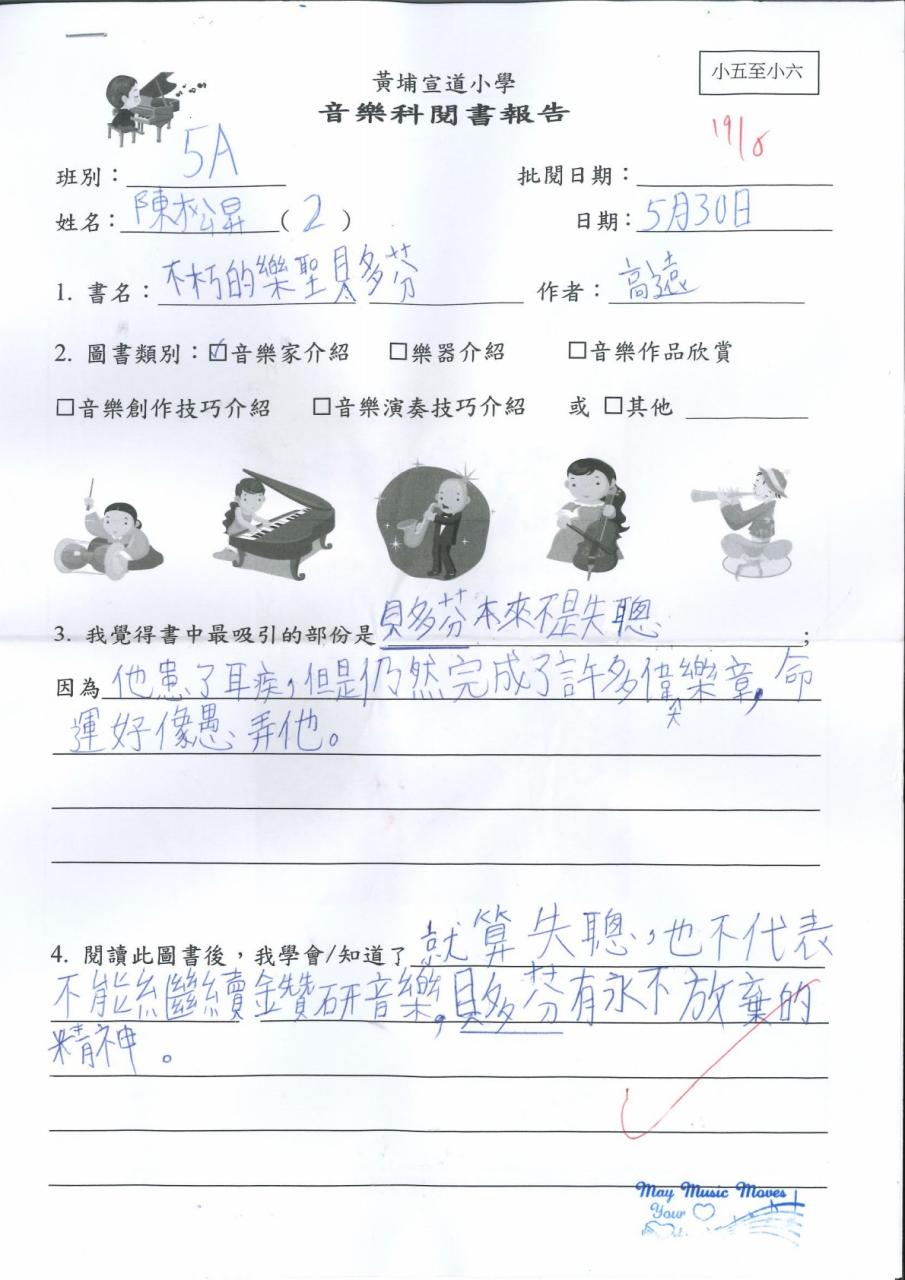 小五至小六
黃埔宣道小學
音樂科閱書報告
班別：5A
批閱日期：19/6
姓名：陳松昇(2)
日期：5月30日
1. 書名：不朽的樂聖貝多芬 作者：高遠
2. 圖書類別：☑音樂家介紹 □樂器介紹 □音樂作品欣賞
□音樂創作技巧介紹 □音樂演奏技巧介紹 或 □其他
3. 我覺得書中最吸引的部份是貝多芬本來不是失聰；
因為他患了耳疾，但是仍然完成了許多偉樂章，命
運好像愚弄他。
4. 閱讀此圖書後，我學會/知道了就算失聰，也不代表
不能繼續鑽研音樂，貝多芬有永不放棄的
精神。
May Music Moves
Your